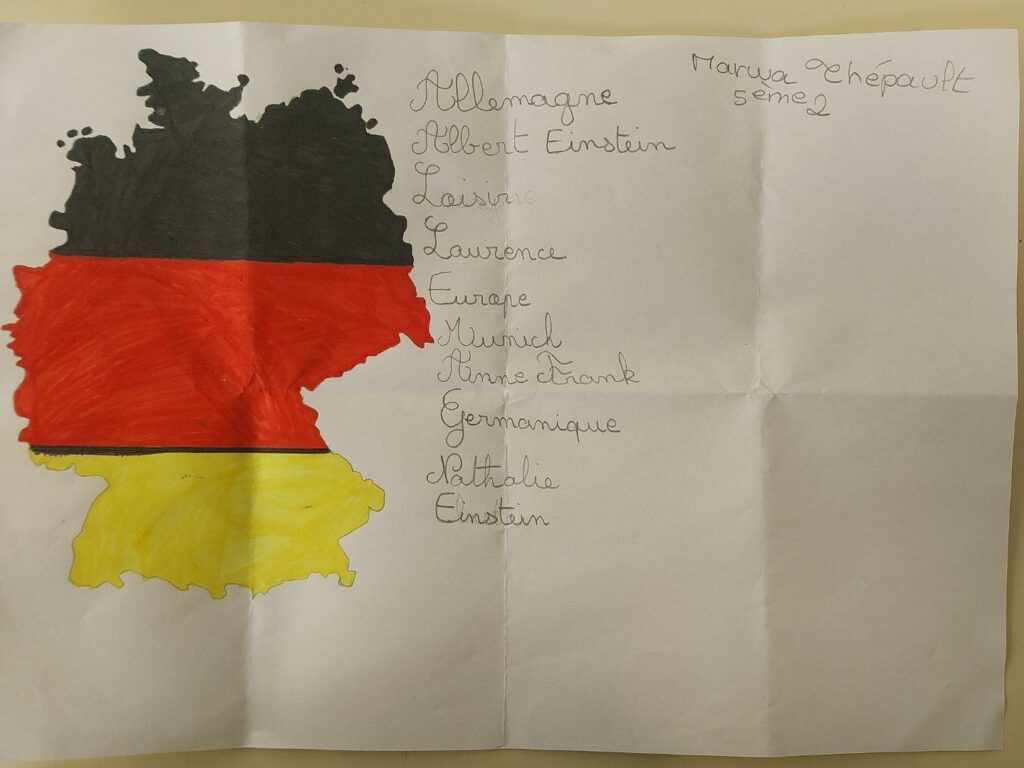 Marwa Thépault
5ème2
Allemagne
Albert Einstein
Laurence
Europe
Munich
Anne Frank
Germanique
Nathalie
Einstein